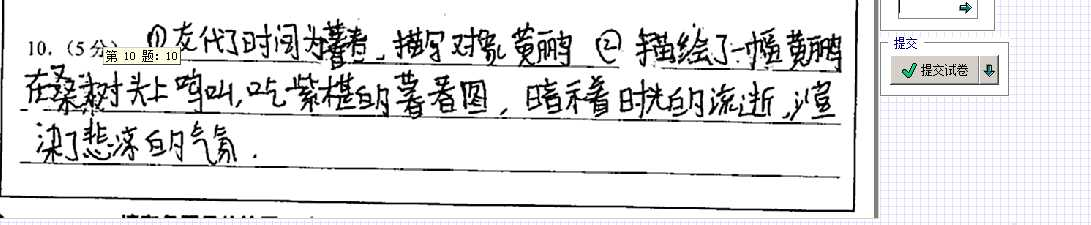 10.(5分) ①交代了时间为暮春,描写对象黄鹂 ②描绘了一幅黄鹂
第 10 题: 10
在桑树头上鸣叫,吃紫椹的暮春图,暗示着时光的流逝,渲
染了悲凉的气氛.
提交
提交试卷